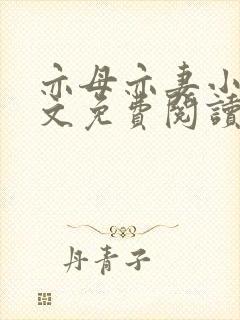 亦母亦妻小
文免費閱讀
丹青子